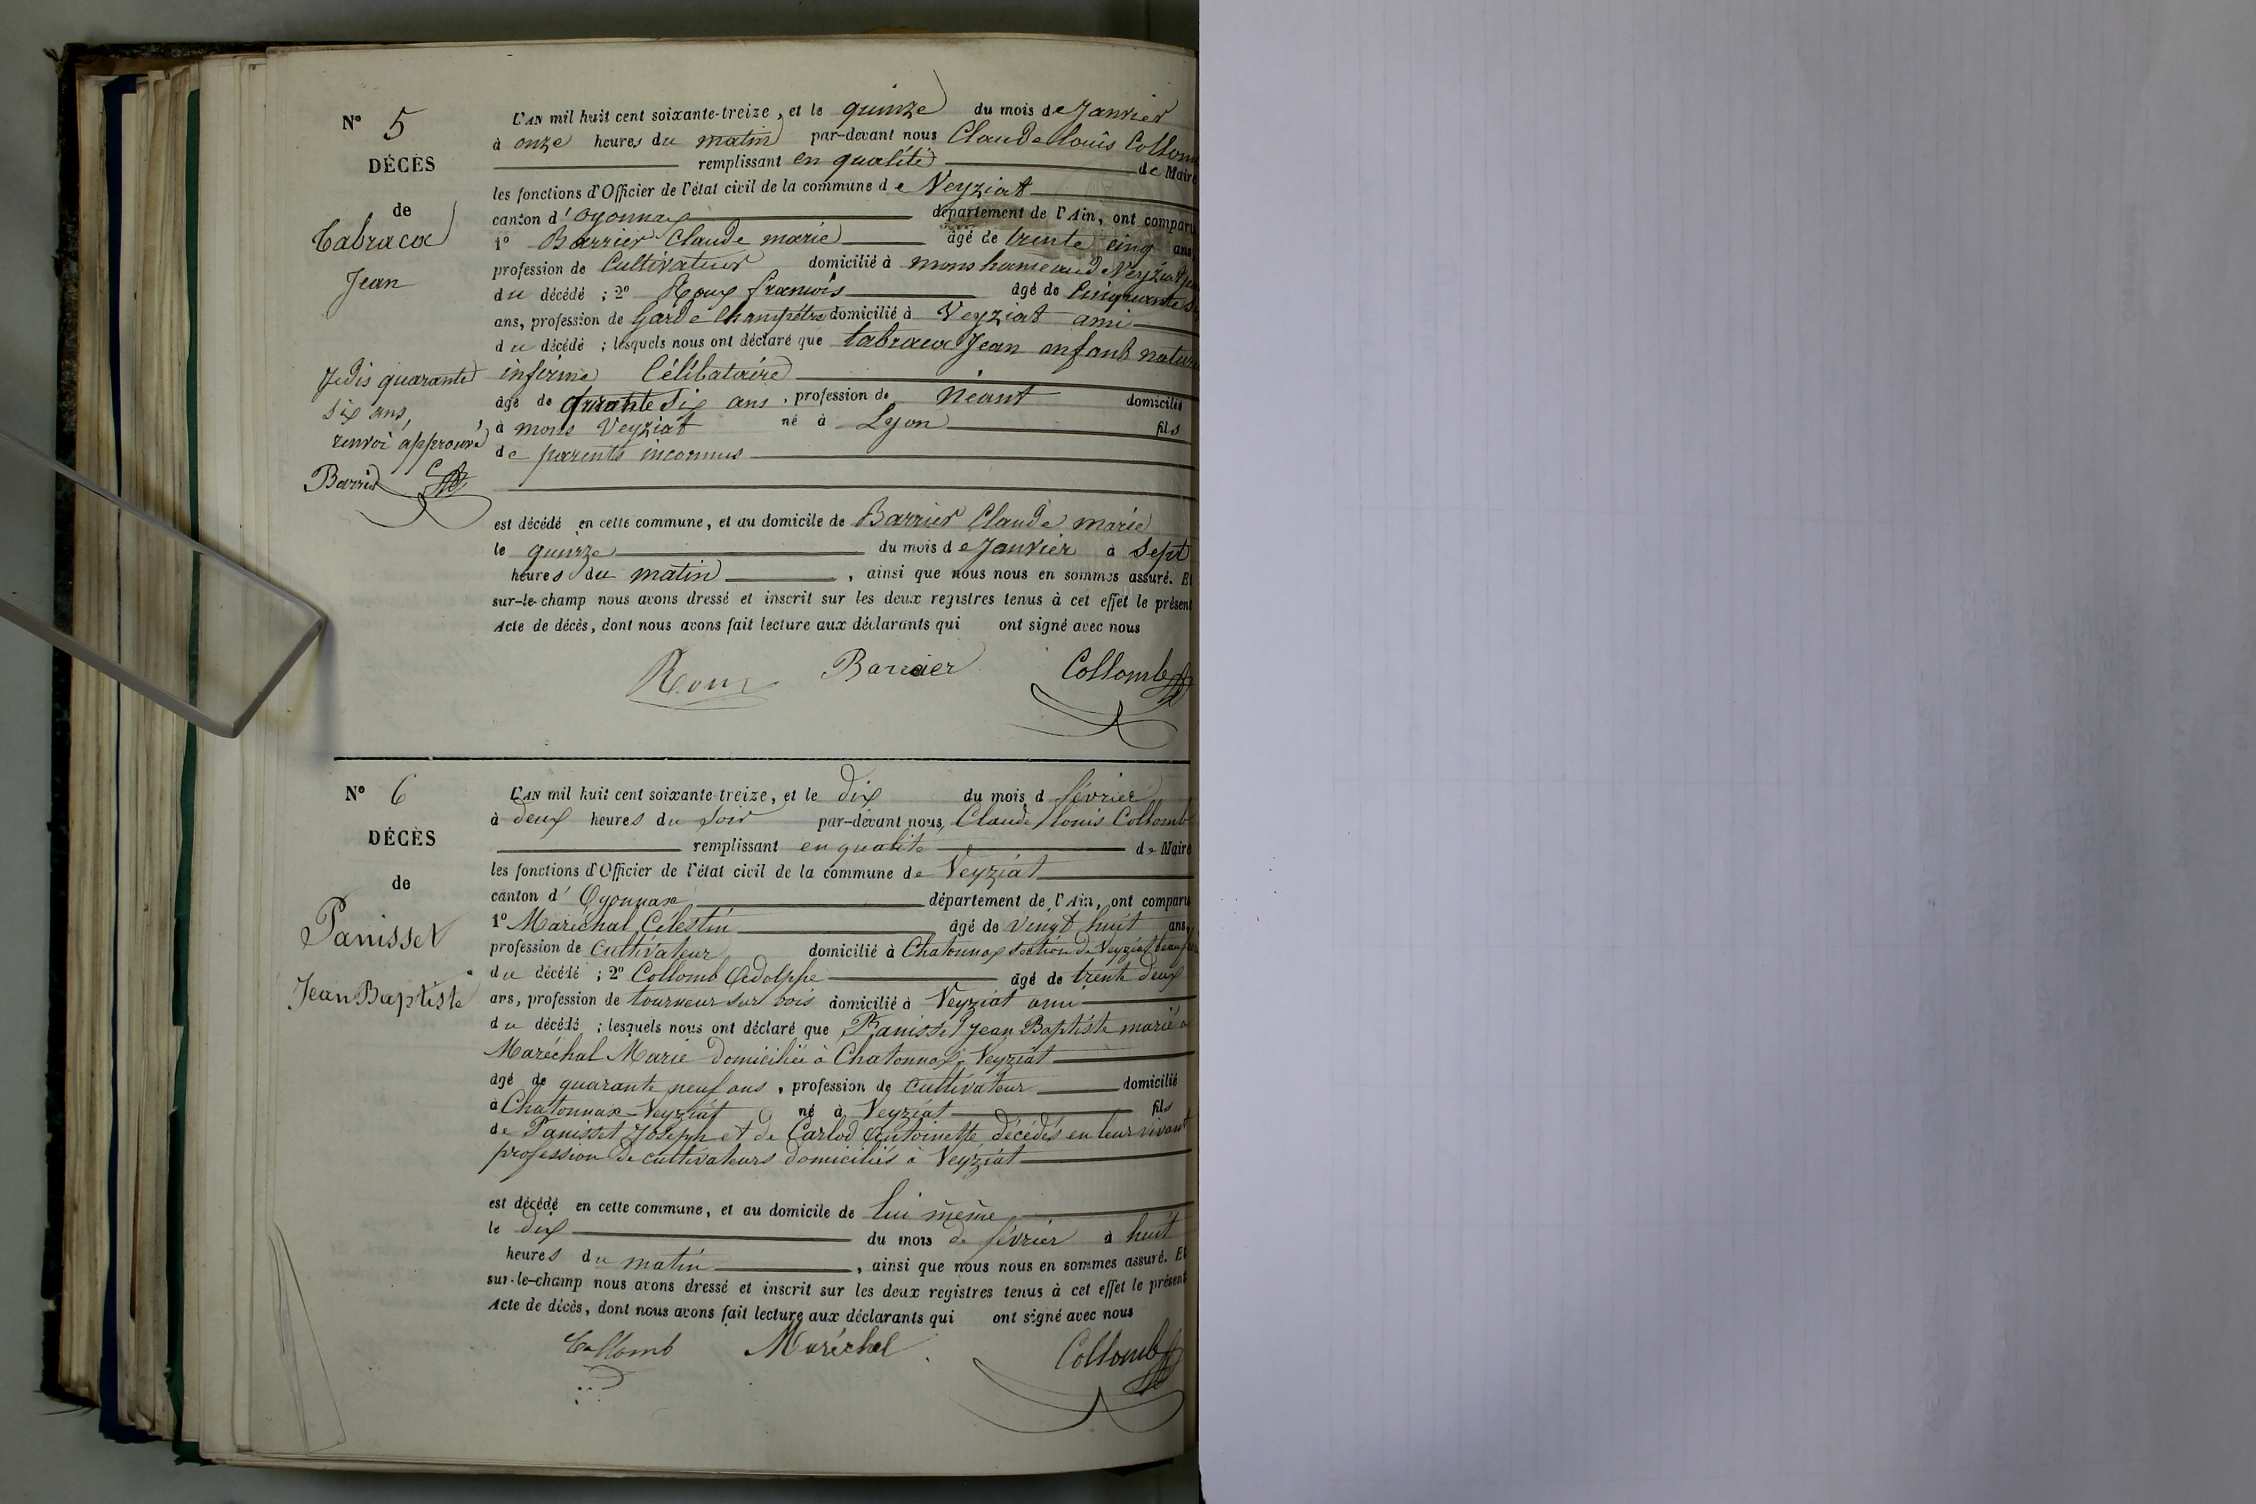 N° 5
DÉCÈS
de
Tabracoc
Jean
Jedis quarante
six ans,
renvoi approuvé
Barrier
L'AN mil huit cent soixante-treize, et le quinze du mois de Janvier
à onze heures du matin par-devant nous Claude Louis Collomb
remplissant en qualité de Maire
les fonctions d'Officier de l'état civil de la commune de Veyziat
canton d'Oyonnax département de l'Ain, ont comparu
1° Barrier Claude marie âgé de trente cinq ans
profession de Cultivateur domicilié à mons hameau de Veyziat
du décédé ; 2° Roux francois âgé de Cinquante
ans, profession de Garde Champêtre domicilié à Veyziat ami
du décédé ; lesquels nous ont déclaré que tabracoc Jean enfant naturel
infirme Célibataire
âgé de quarante six ans, profession de Néant domicilié
à mons Veyziat né à Lyon fils
de parents inconnus
est décédé en cette commune, et au domicile de Barrier Claude marie
le quinze du mois de Janvier à Sept
heures du matin, ainsi que nous nous en sommes assuré. Et
sur-le-champ nous avons dressé et inscrit sur les deux registres tenus à cet effet le présent
Acte de décès, dont nous avons fait lecture aux déclarants qui ont signé avec nous
Roux Barrier Collomb
N° 6
DÉCÈS
de
Panisset
Jean Baptiste
L'AN mil huit cent soixante-treize, et le dix du mois d février
à deux heures du soir par-devant nous, Claude Louis Collomb
remplissant en qualité de Maire
les fonctions d'Officier de l'état civil de la commune de Veyziat
canton d'Oyonnax département de l'Ain, ont comparu
1° Maréchal Célestin âgé de vingt huit ans,
profession de cultivateur domicilié à Chatonnax section de Veyziat beau
du décédé ; 2° Collomb Adolphe âgé de trente deux
ans, profession de tourneur sur bois domicilié à Veyziat ami
du décédé ; lesquels nous ont déclaré que Panisset Jean Baptiste marié à
Maréchal Marie domiciliée à Chatonnax Veyziat
âgé de quarante neuf ans, profession de cultivateur domicilié
à Chatonnax-Veyziat né à Veyziat fils
de Panisset Joseph et de Carlod Antoinette décédés en leur vivant
profession de cultivateurs domiciliés à Veyziat
est décédé en cette commune, et au domicile de lui même
le dix du mois de février à huit
heures du matin, ainsi que nous nous en sommes assuré. Et
sur-le-champ nous avons dressé et inscrit sur les deux registres tenus à cet effet le présent
Acte de décès, dont nous avons fait lecture aux déclarants qui ont signé avec nous
Collomb Maréchal Collomb